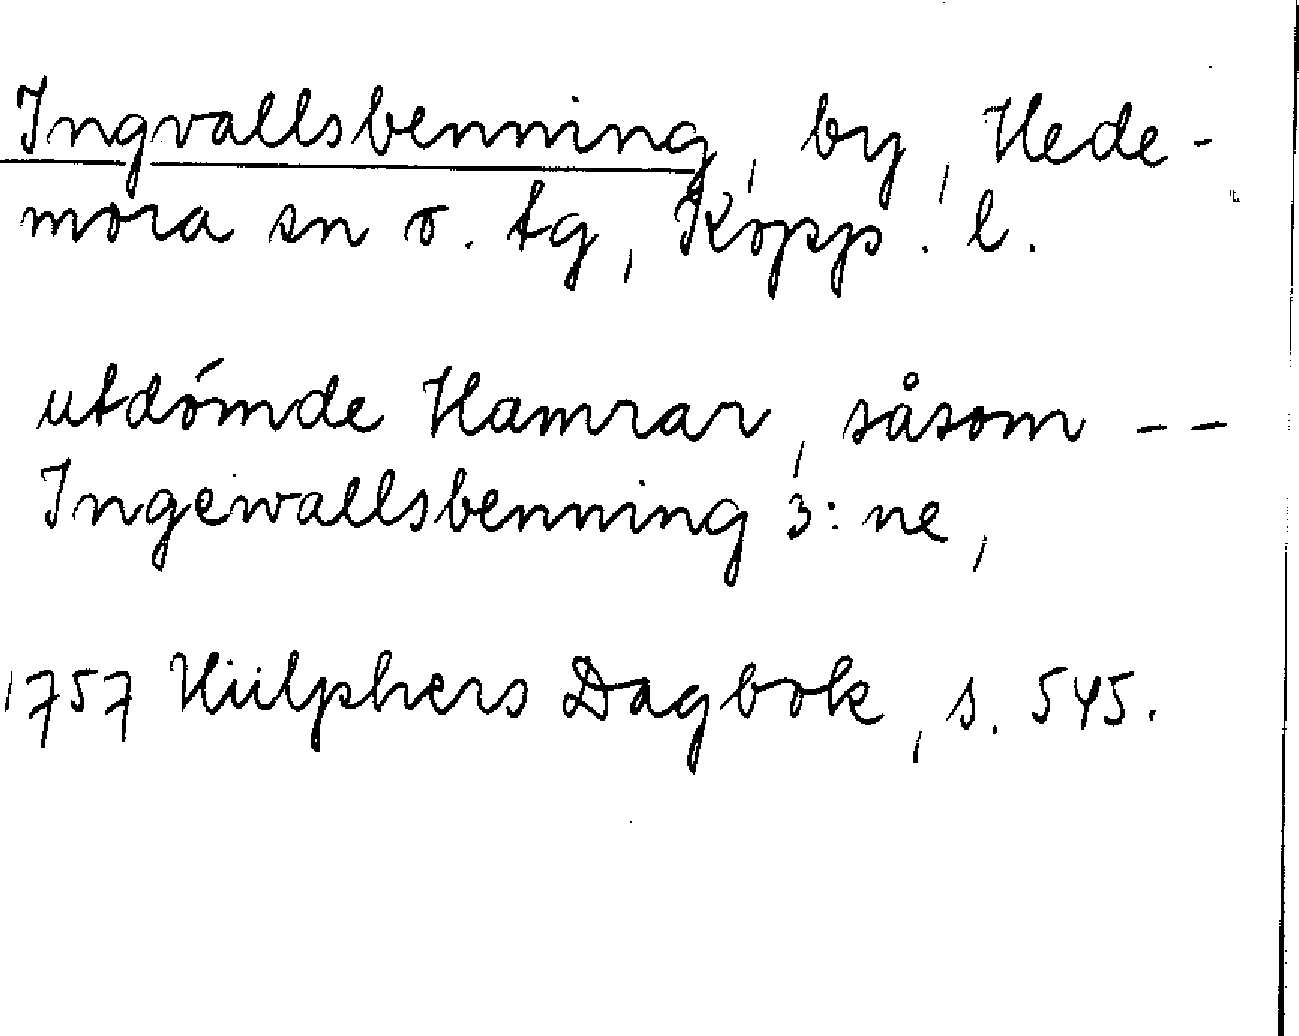 Ingvallsbenning, by, Hede-
mora sn o. tg, Kopp. l.
utdömde Hamrar, såsom --
Ingewallsbenning 3:ne,
1757 Hülphers Dagbok, s. 545.